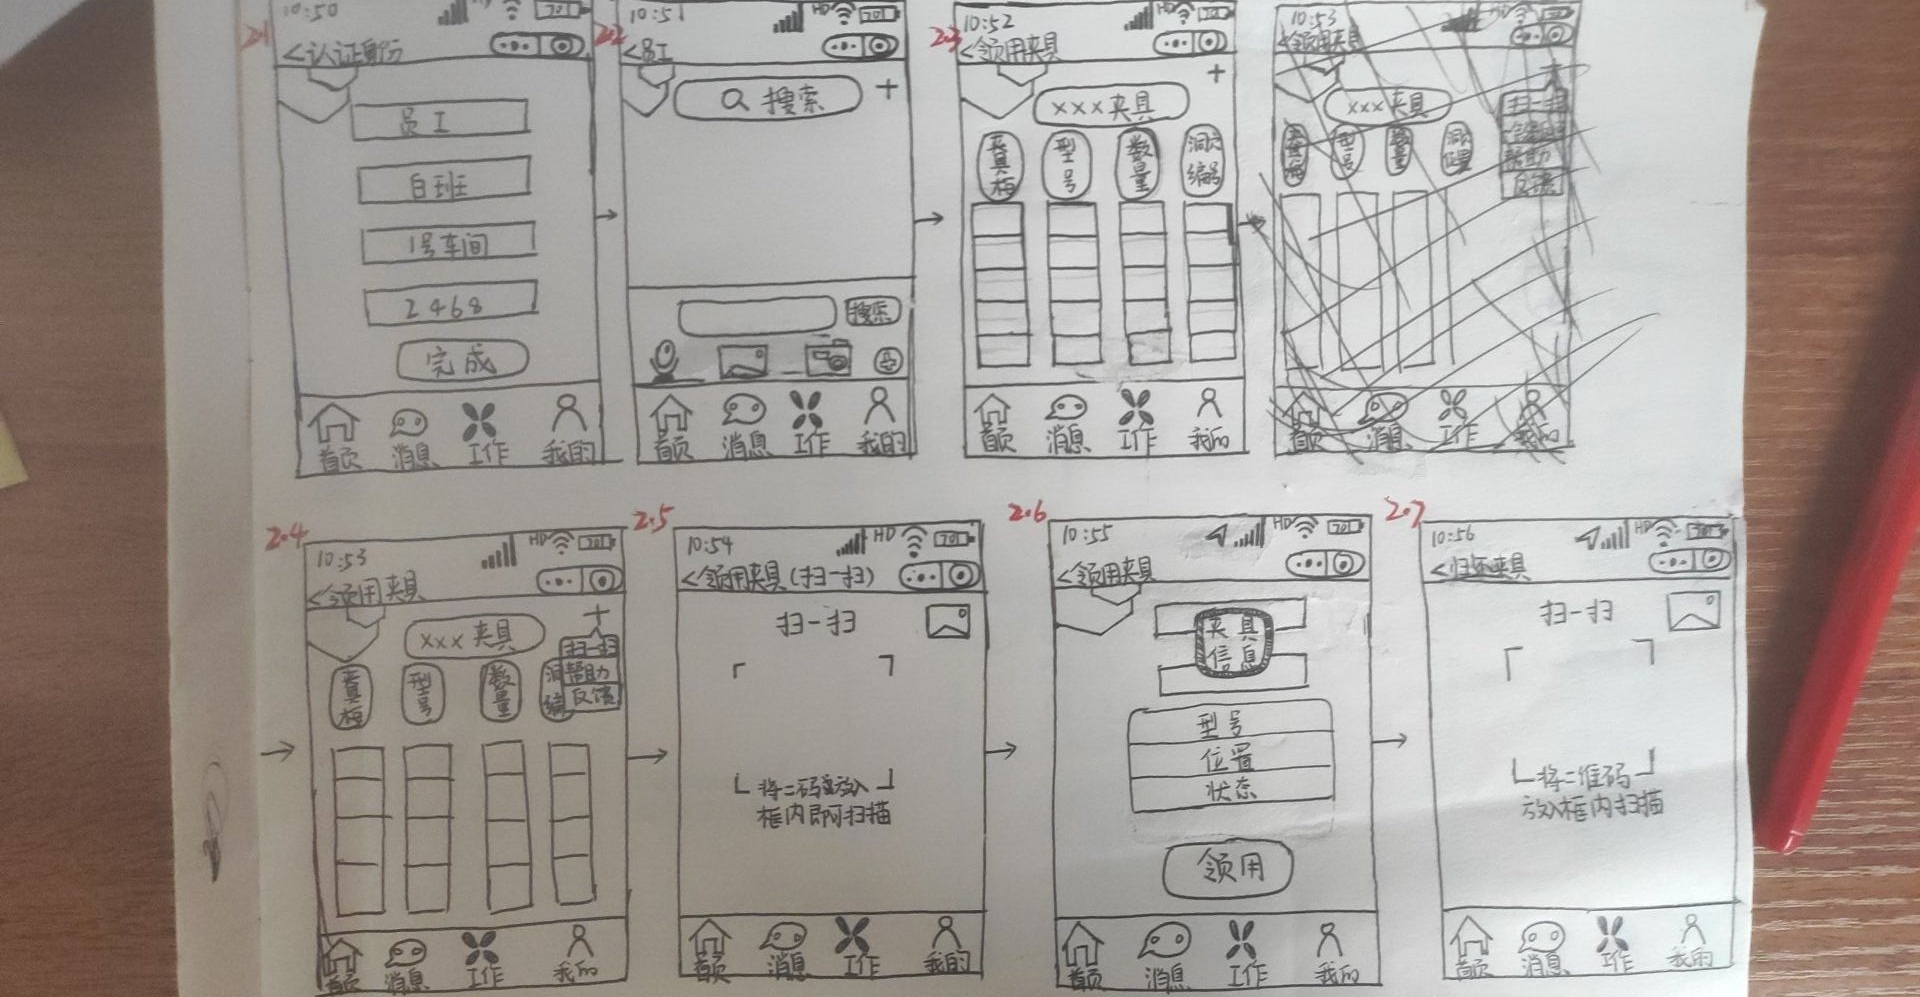 2.1
10:50
<认证身份
员工
白班
1号车间
2468
完成
首页 消息 工作 我的
2.2
10:51
HD
<员工
搜索 +
搜索
首页 消息 工作 我的
2.3
10:52
HD
<领用夹具
+
xxx夹具
夹具柜 型号 数量
编号
首页 消息 工作 我的
10:53
<领用夹具
xxx夹具
型号 数量
扫一扫
帮助
反馈
首页 消息 工作 我的
2.4
10:53
HD
<领用夹具
+
xxx夹具
扫一扫
帮助
反馈
夹具柜 型号 数量
首页 消息 工作 我的
2.5
10:54
HD
<领用夹具(扫一扫)
扫一扫
框内即可扫描
首页 消息 工作 我的
2.6
10:55
HD
<领用夹具
夹具
信息
型号
位置
状态
领用
首页 消息 工作 我的
2.7
10:56
HD
<归还夹具
扫一扫
将二维码
放入框内扫描
首页 消息 工作 我的